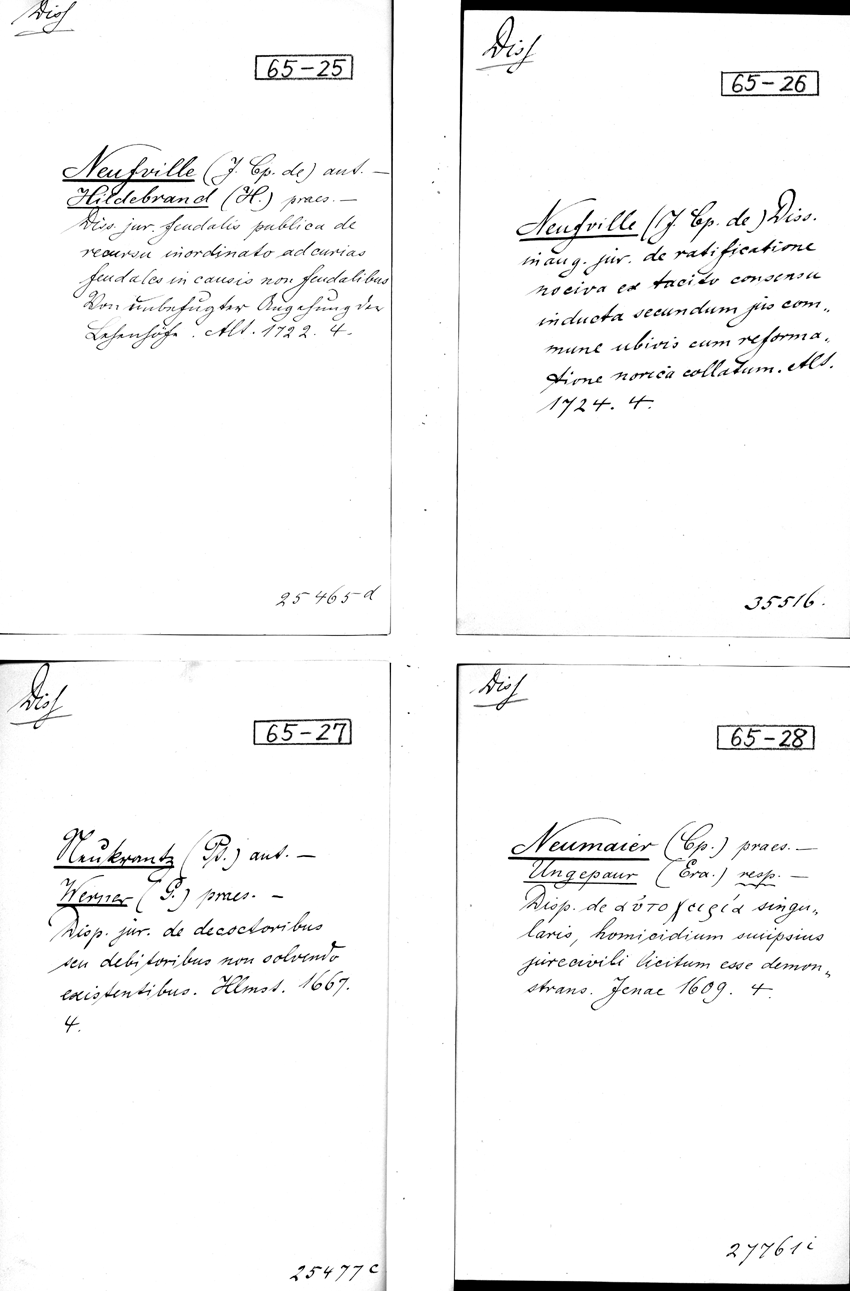 Diss
65-25
Neufville (J. Cp. de) aut. —
Hildebrand (H.) praes. —
Diss. jur. feudalis publica de
recursu inordinato ad curias
feudales in causis non feudalibus
Von unbefugter Angehung der
Lehenhöfe. Alt. 1722. 4.
25465 d
Diss
65-26
Neufville (J. Cp. de) Diss.
inaug. jur. de ratificatione
nociva ex tacito consensu
inducta secundum jus com„
mune ubivis cum reforma„
tione norica collatum. Alt.
1724. 4.
35516.
Diss
65-27
Neukrantz (B.) aut. —
Werner (P.) praes. —
Disp. jur. de decoctoribus
seu debitoribus non solvendo
existentibus. Hlmst. 1667.
4.
25477 c
Diss
65-28
Neumaier (Cp.) praes. —
Ungepaur (Era.) resp. —
Disp. de αὐτοχειρία singu„
laris, homicidium suiipsius
jure civili licitum esse demon„
strans. Jenae 1609. 4.
27761 i